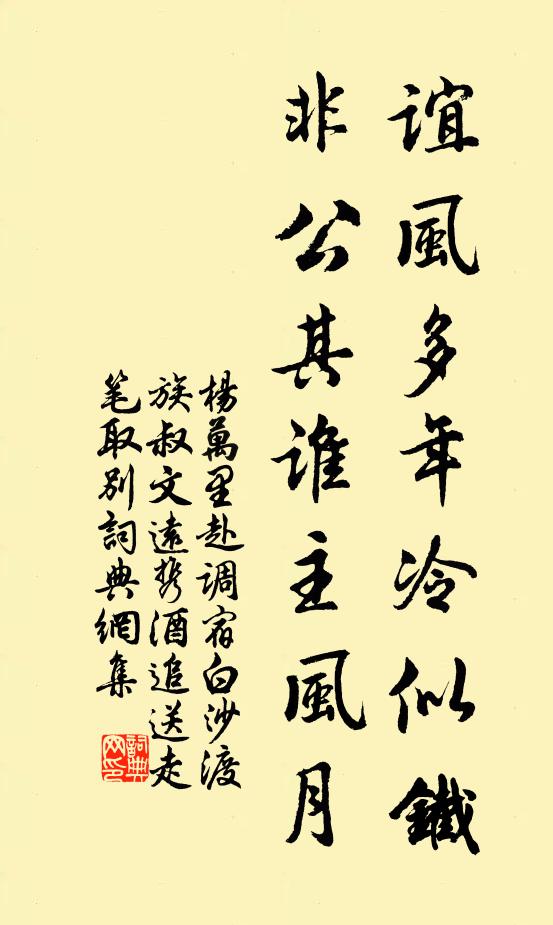 誼風多年冷似鐵
非公其誰主風月
楊萬里赴调宿白沙渡
族叔文遠携酒追送走
笔取别詞典網集
詞典
网印